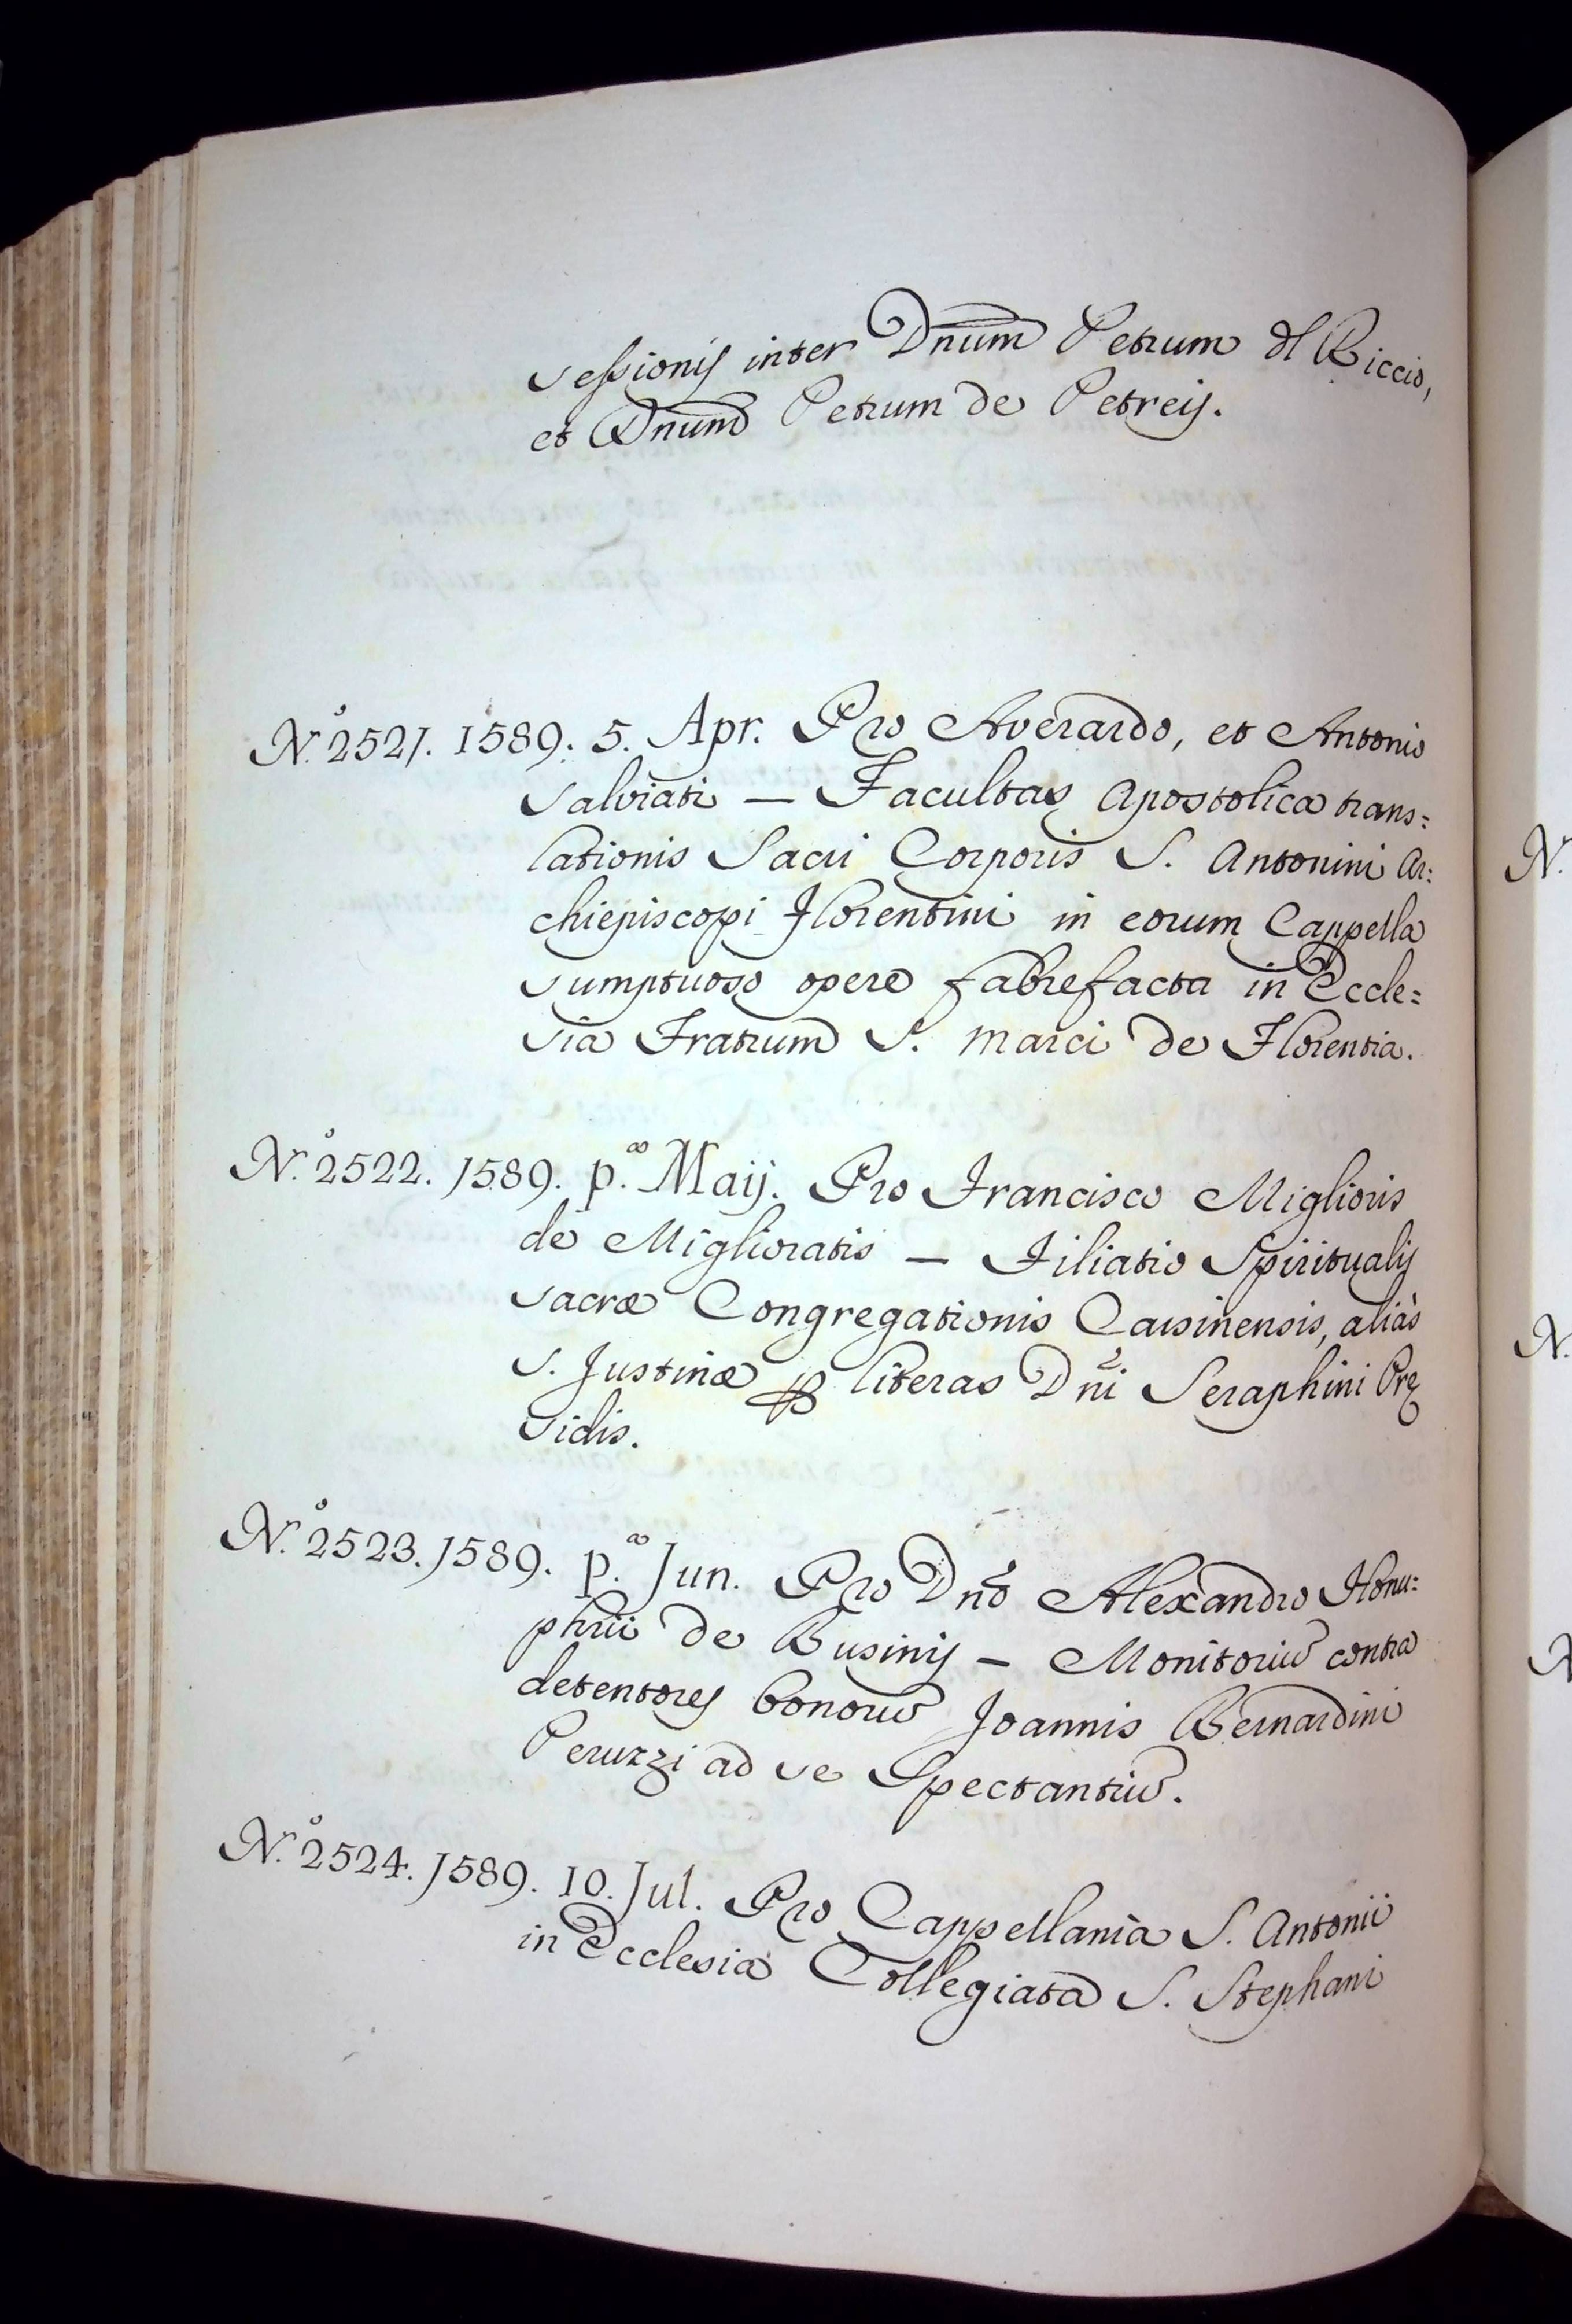 sessionis inter Dnum Petrum dl Riccio,
et Dnum Petrum de Petreis.
N.° 2521. 1589. 5. Apr. Pro Averardo, et Antonio
Salviati — Facultas Apostolica trans=
lationis Sacri Corporis S. Antonini Ar=
chiepiscopi Florentini in eorum Cappella
sumptuoso opere fabrefacta in Eccle=
sia Fratrum S. Marci de Florentia.
N.° 2522. 1589. p.ª Maij. Pro Francisco Miglioris
de Miglioratis — Filiatio Spiritualis
sacræ Congregationis Casinensis, aliàs
S. Justinæ literas Dni Seraphini Prę
sidis.
N.° 2523. 1589. p.ª Jun. Pro Dno Alexandro Honu=
phrii de Businis — Monitoriũ contra
detentores bonorũ Joannis Bernardini
Peruzzi ad se Spectantiũ.
N.° 2524. 1589. 10. Jul. Pro Cappellania S. Antonii
in Ecclesia Collegiata S. Stephani
N.
N.
N